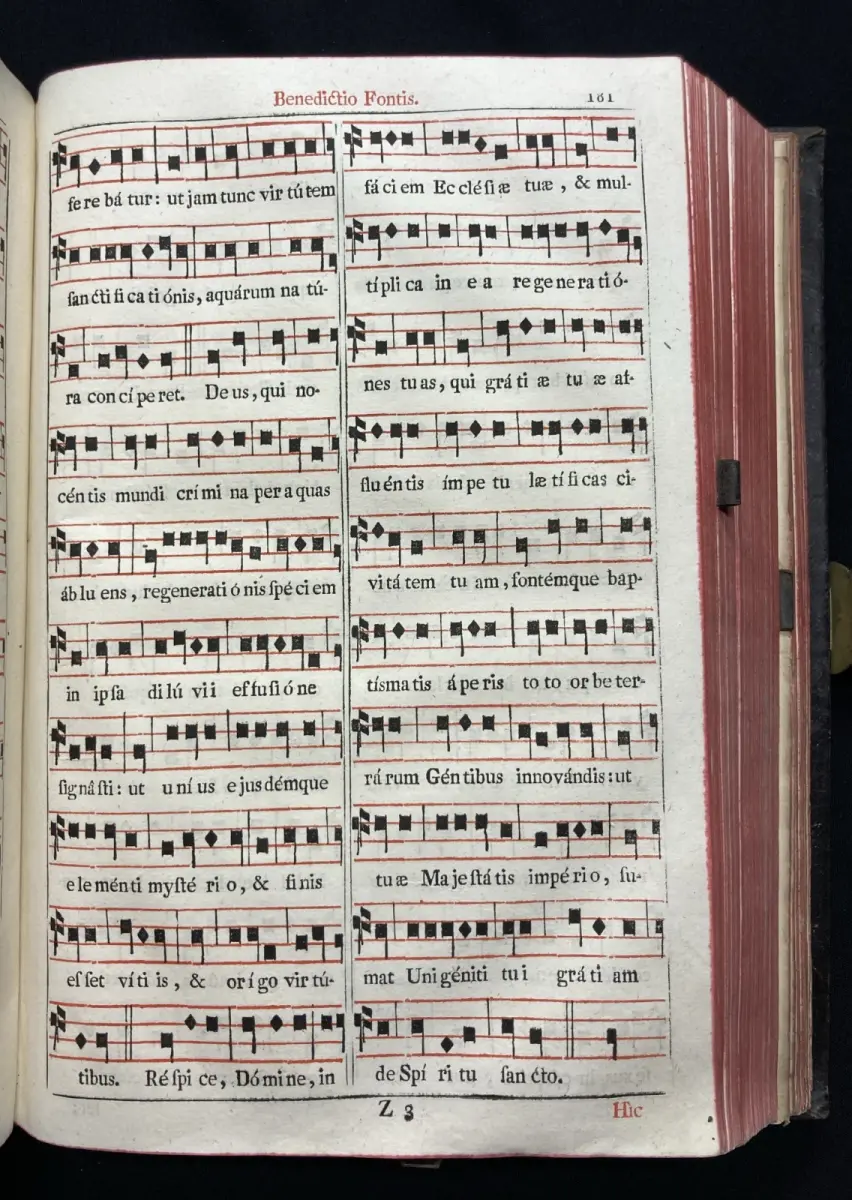 Benedictio Fontis.
181
fe re bá tur: ut jam tunc vir tú tem
ſan cti fi ca ti ónis, aquárum na tú-
ra con cí pe ret. De us, qui no-
cén tis mundi crí mi na per a quas
áb lu ens, regenerati ó nis ſpé ci em
in ip ſa di lú vii ef fu ſi ó ne
ſig ná ſti: ut u ní us e jus démque
e le ménti myſté ri o, & finis
eſ ſet ví ti is, & orí go vir tú-
tibus. Ré ſpi ce, Dó mi ne, in
fá ci em Ec clé ſi æ tuæ, & mul-
tí pli ca in e a re ge ne ra ti ó-
nes tu as, qui grá ti æ tu æ af-
flu én tis ím pe tu læ tí fi cas ci-
vi tá tem tu am, fontémque bap-
tísma tis á pe ris to to or be ter-
rá rum Gén tibus innovándis: ut
tu æ Ma je ſtá tis impé ri o, ſu-
mat Uni géniti tu i grá ti am
de Spí ri tu ſan cto.
Z 3
Hic